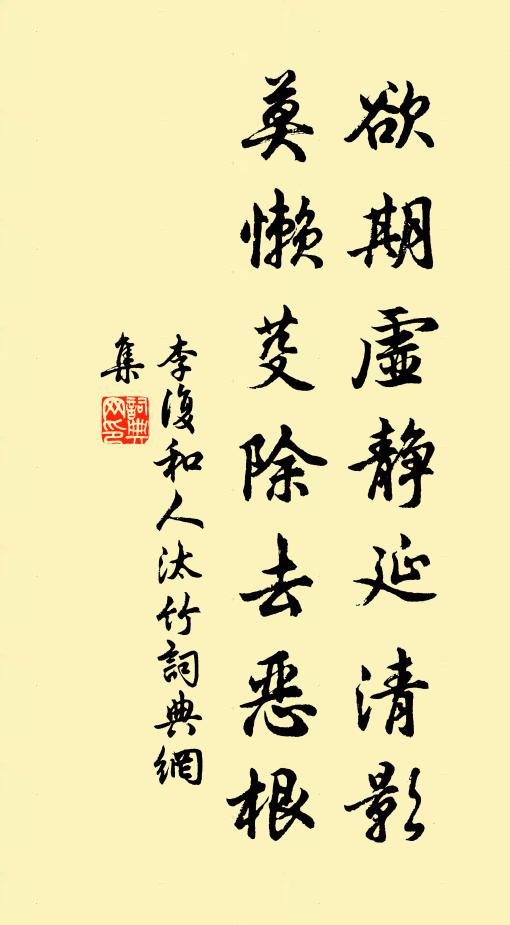 欲期虛靜延清影
莫懶芟除去惡根
李復和人汰竹詞典網
集
詞典
網印